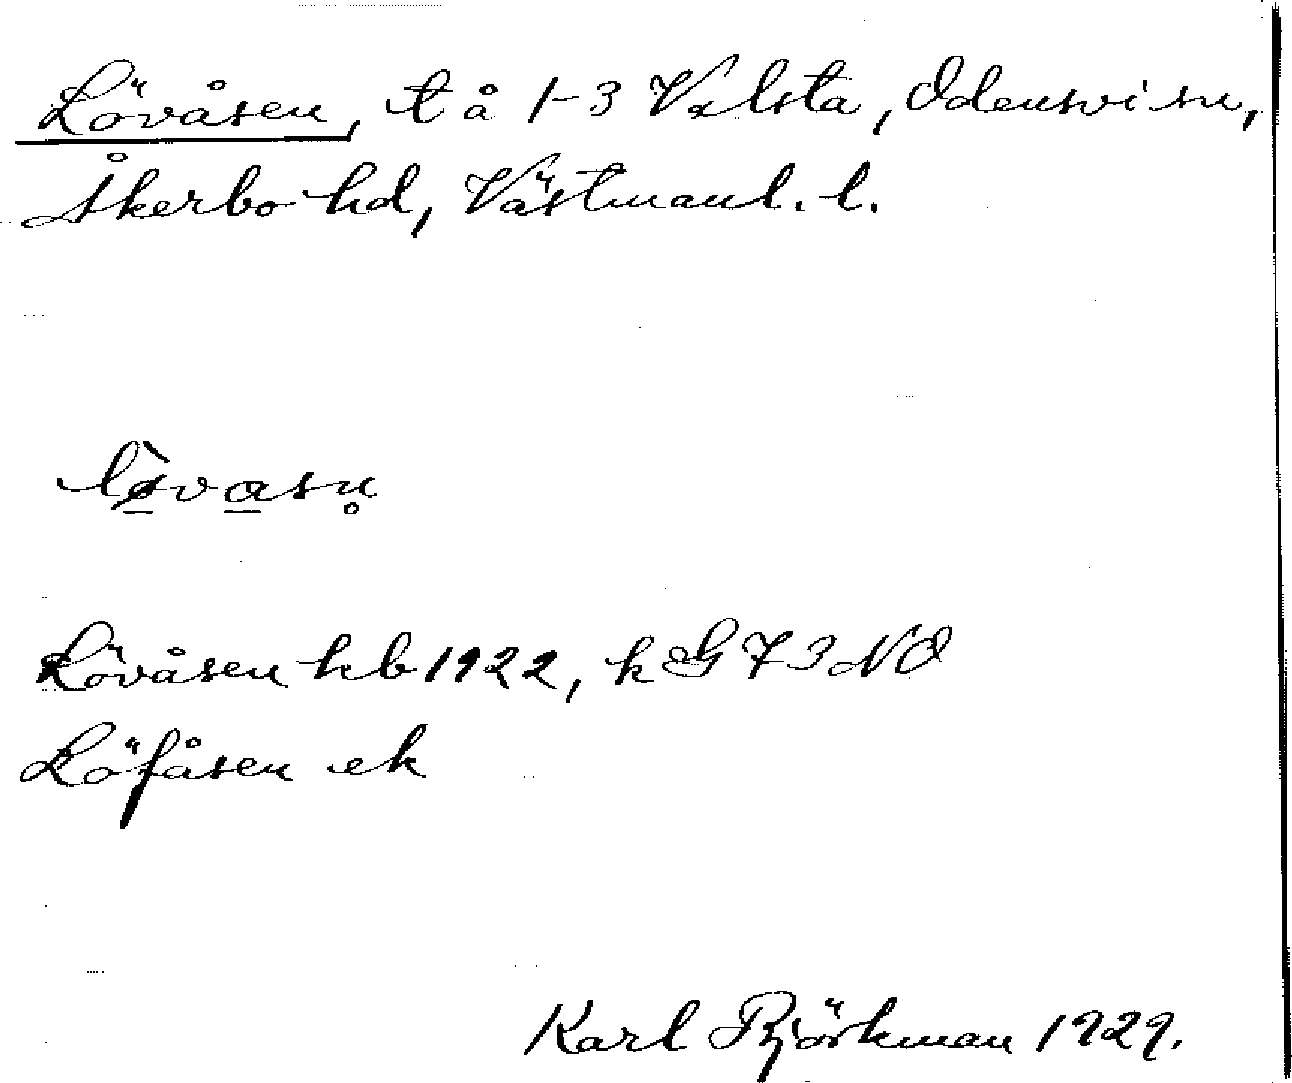 Lövåsen, t å 1-3 Valsta, Odensvi sn,
Åkerbo hd, Västmanl. l.
Lövåsen hb 1922, k G 73 NO
Löfåsen ek
Karl Björkman 1929.